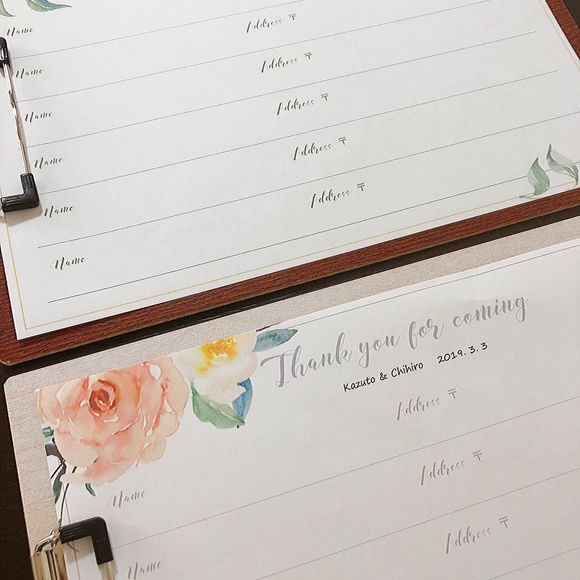 Name Address 〒
Name Address 〒
Name Address 〒
Name Address 〒
Name Address 〒
Name
Thank you for coming
Kazuto & Chihiro 2019. 3. 3
Address 〒
Name Address 〒
Name Address 〒